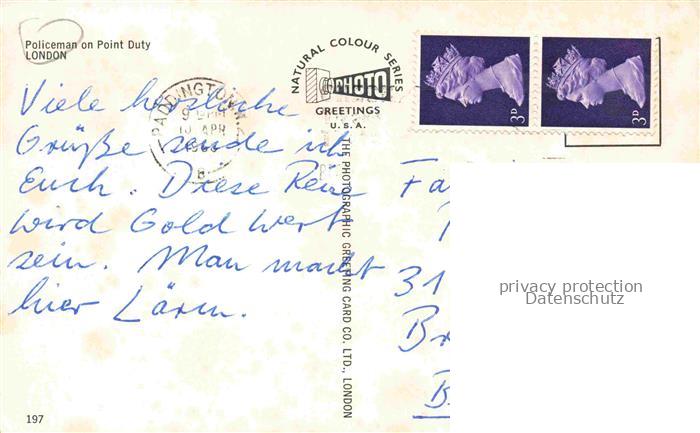 Policeman on Point Duty
LONDON
NATURAL COLOUR SERIES
PHOTO
GREETINGS
U.S.A.
PADDINGTON
10 APR
B
3D
3D
Viele herzliche
Grüße sende ich
Euch. Diese Reise
wird Gold wert
sein. Man macht
hier Lärm.
THE PHOTOGRAPHIC GREETING CARD CO. LTD., LONDON
Fa
31
Br
B
privacy protection
Datenschutz
197